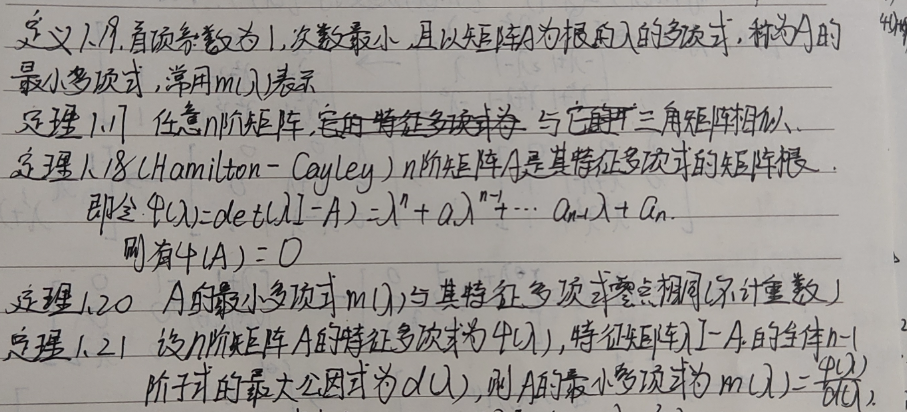 定义1.19.首项系数为1,次数最小,且以矩阵A为根的λ的多项式,称为A的
最小多项式,常用m(λ)表示
定理1.17 任意n阶矩阵,它的特征多项式为 与三角矩阵相似.
定理1.18(Hamilton-Cayley) n阶矩阵A是其特征多项式的矩阵根.
即令φ(λ)=det(λI-A)=λⁿ+a₁λⁿ⁻¹+⋯ aₙ₋₁λ+aₙ.
则有φ(A)=0
定理1.20 A的最小多项式m(λ)与其特征多项式零点相同(不计重数)
定理1.21 设n阶矩阵A的特征多项式为φ(λ),特征矩阵λI-A的全体n-1
阶子式的最大公因式为d(λ),则A的最小多项式为m(λ)=φ(λ)/d(λ),